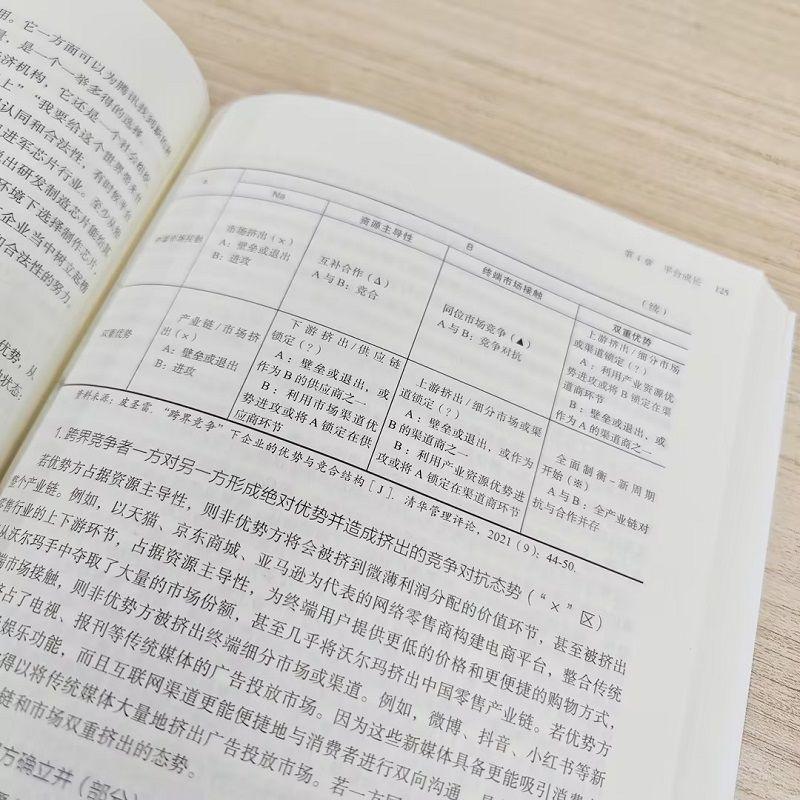 用。它一方面可以为腾讯找到新的
量，是一个一举多得的选择
济机构，它还是一个社会组织
上”“我要给这个世界带来
认同和合法性，有时候平台
进军芯片行业。至少从
说出研发制造芯片能
环境下选择制作芯片，
企业当中树立起榜
和合法性的努力。
优势，从
的状态：
第4章 平台成长 125
（续）
Na
资源主导性
B
终端市场接触
双重优势
终端市场接触
市场挤出（×）
A：壁垒或退出
B：进攻
互补合作（Δ）
A与B：竞合
同位市场竞争（▲）
A与B：竞争对抗
上游挤出/细分市场
或渠道锁定（?）
A：利用产业资源优
势进攻或将B锁定在渠
道商环节
B：壁垒或退出，或
作为A的渠道商之一
双重优势
产业链/市场挤
出（×）
A：壁垒或退出
B：进攻
下游挤出/供应链
锁定（?）
A：壁垒或退出，或
作为B的供应商之一
B：利用市场渠道优
势进攻或将A锁定在供
应商环节
上游挤出/细分市场或渠
道锁定（?）
A：壁垒或退出，或作为
B的渠道商之一
B：利用产业资源优势进
攻或将A锁定在渠道商环节
全面制衡-新周期
开始（※）
A与B：全产业链对
抗与合作并存
资料来源：皮圣雷.“跨界竞争”下企业的优势与竞合结构[J]. 清华管理评论，2021（9）：44-50.
1. 跨界竞争者一方对另一方形成绝对优势并造成挤出的竞争对抗态势（“×”区）
若优势方占据资源主导性，则非优势方将会被挤到微薄利润分配的价值环节，甚至被挤出
个产业链。例如，以天猫、京东商城、亚马逊为代表的网络零售商构建电商平台，整合传统
零售行业的上下游环节，占据资源主导性，为终端用户提供更低的价格和更便捷的购物方式，
从沃尔玛手中夺取了大量的市场份额，甚至几乎将沃尔玛挤出中国零售产业链。若优势方
端市场接触，则非优势方被挤出终端细分市场或渠道。例如，微博、抖音、小红书等新
挤占了电视、报刊等传统媒体的广告投放市场。因为这些新媒体具备更能吸引消费
娱乐功能，而且互联网渠道更能便捷地与消费者进行双向沟通，
得以将传统媒体大量地挤出广告投放市场。若一方
链和市场双重挤出的态势。
方确立并（部分）